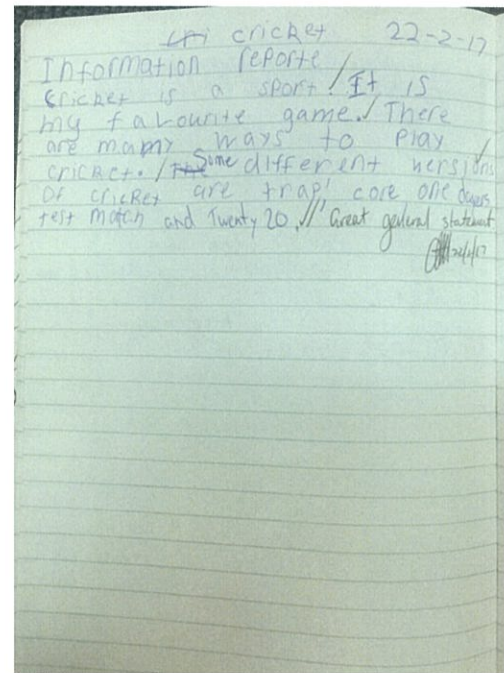 cricket 22-2-17
Information reporte
cricket is a sport. It is
my favourite game. There
are mamy ways to play
cricket. The Some different versions
Of cricket are trap' core one dayers
test match and Twenty 20. Great general statement
22/2/17